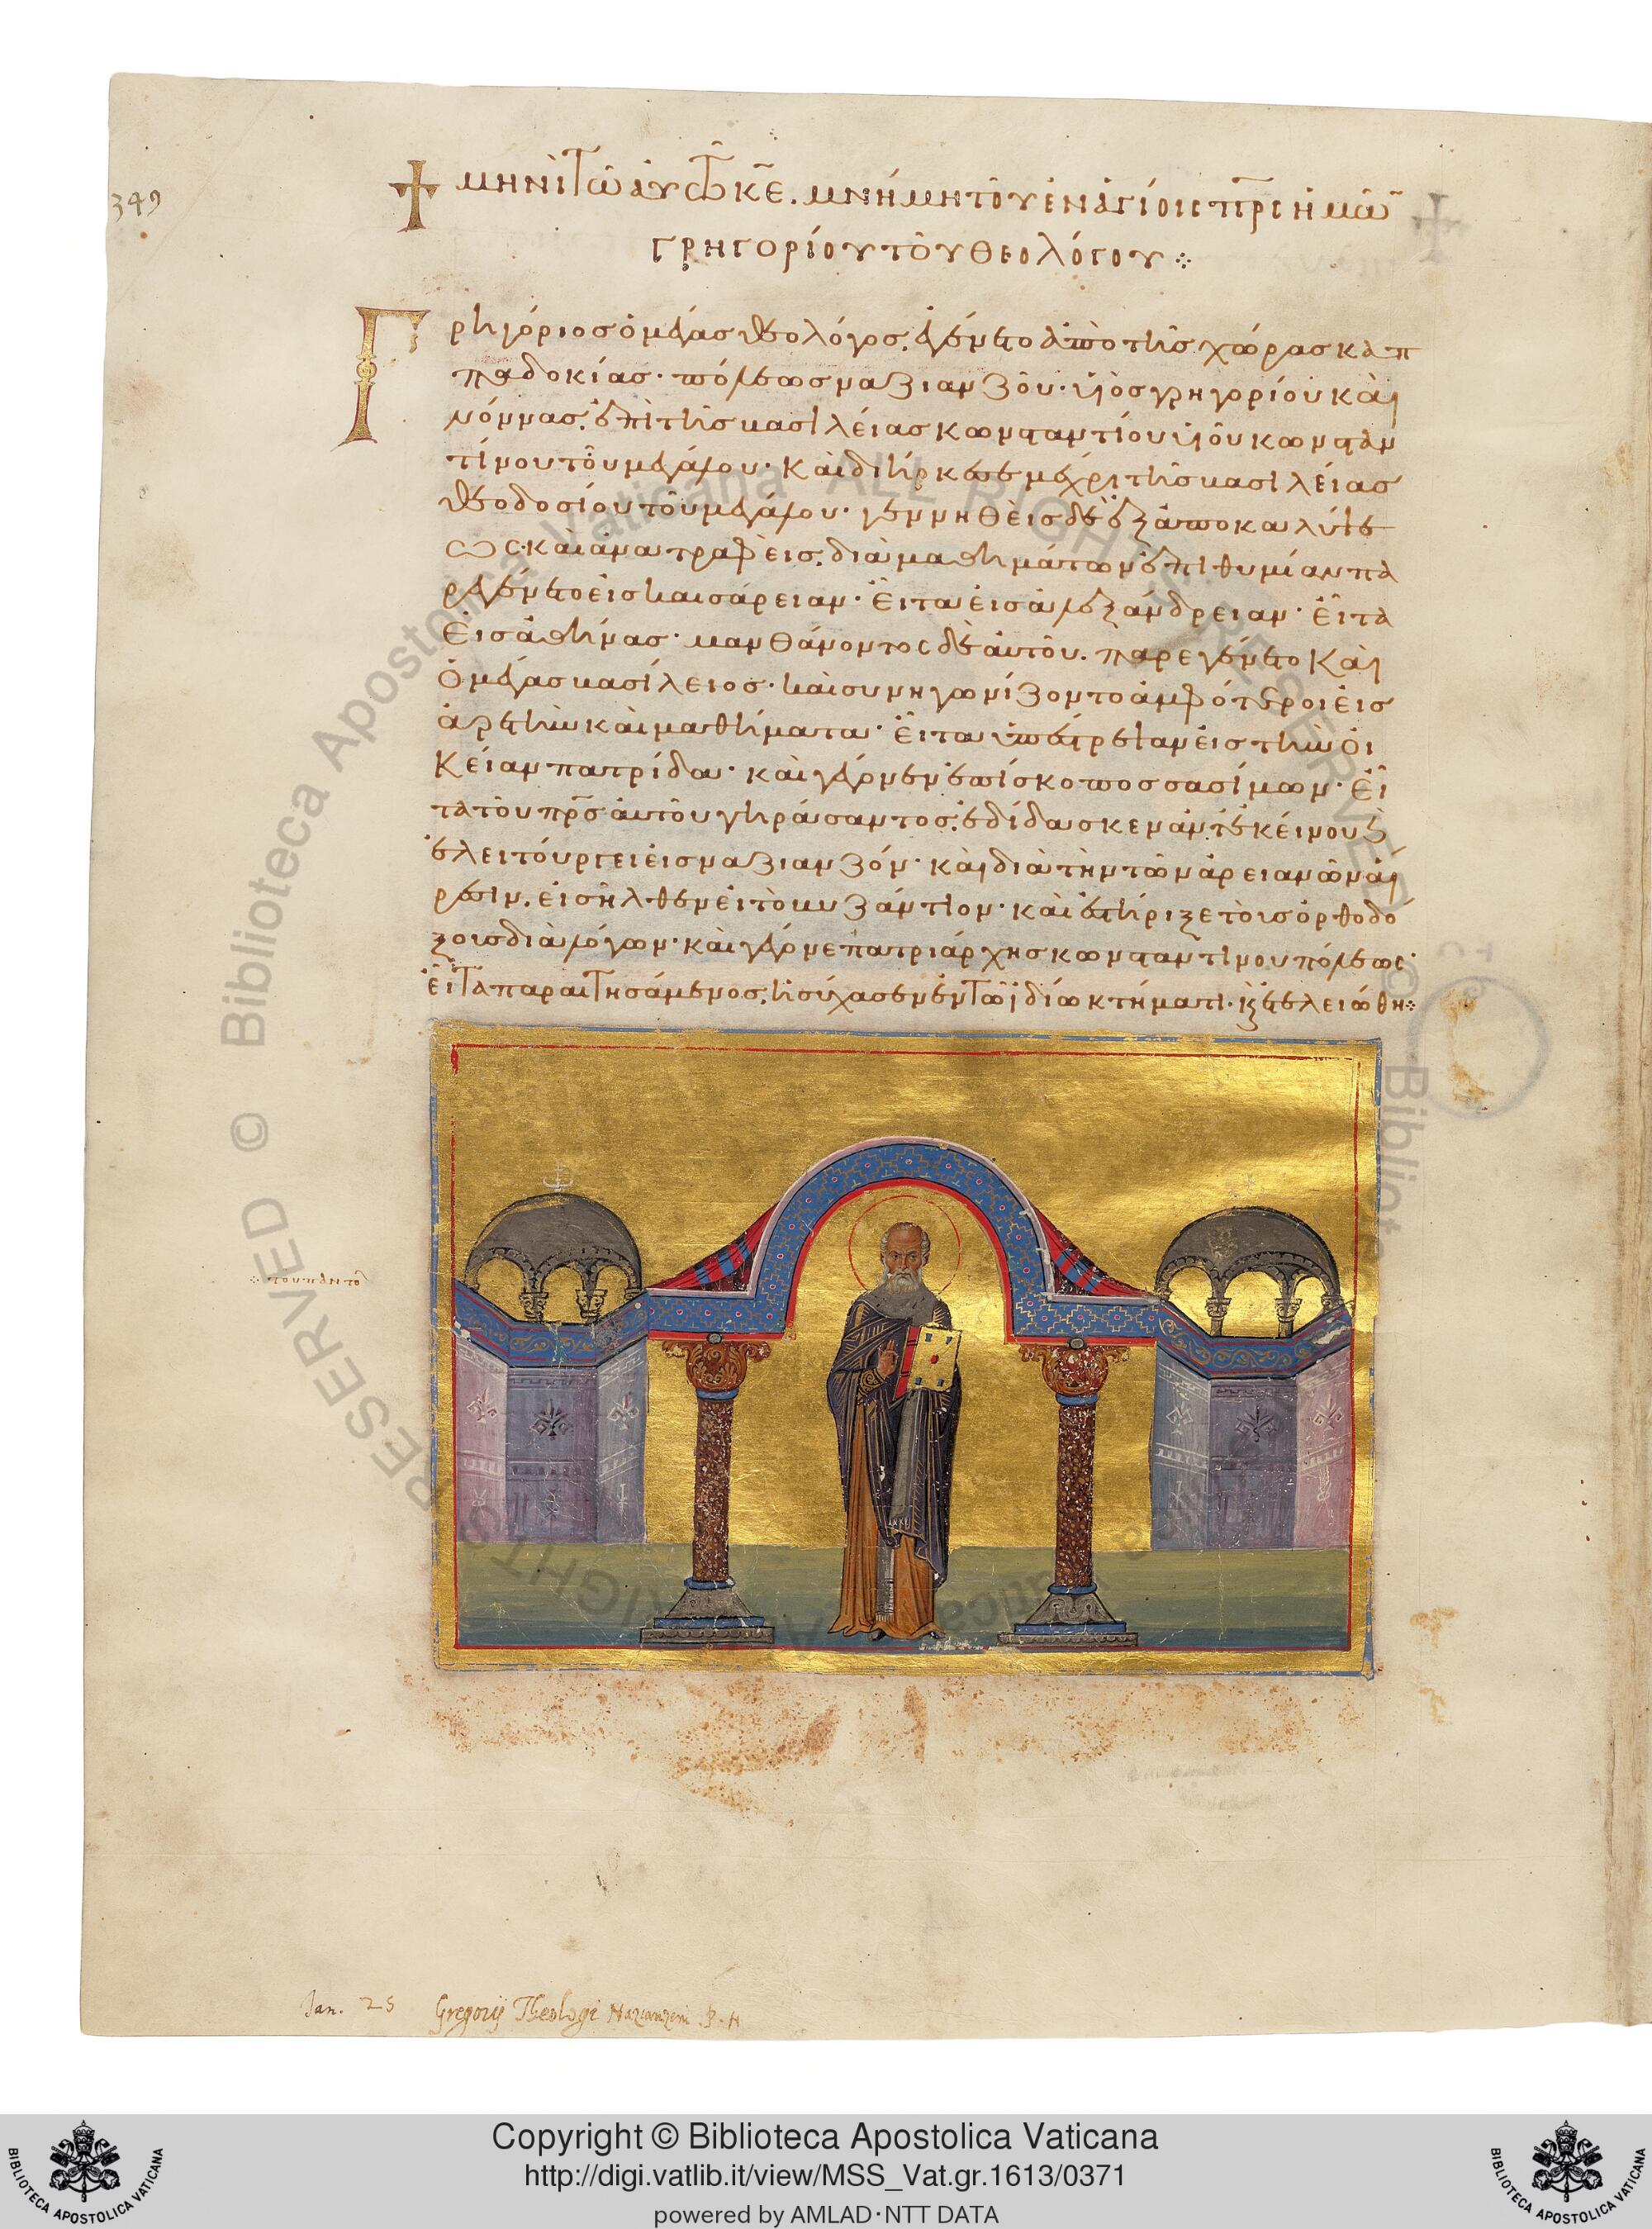 349
μηνὶ τῶ αὐτῶ κε. μνήμη τοῦ ἐν ἁγίοις πρς ἡμῶ
γρηγορίου τοῦ θεολόγου ⁘
Γρηγόριος ὁ μέγας θεολόγος, ἐγένετο ἀπὸ τῆς χώρας καπ
παδοκίας· πόλεως ναζιανζοῦ· υἱὸς γρηγορίου καὶ
νόννας, ἐπὶ τῆς βασιλείας κωνσταντίου υἱοῦ κωνσταν
τίνου τοῦ μεγάλου· καὶ διήρκεσε μέχρι τῆς βασιλείας
θεοδοσίου τοῦ μεγάλου· γεννηθεὶς δὲ ἐξ ἀποκαλύψε
ως καὶ ἀνατραφεὶς, διὰ μαθημάτων ἐπιθυμίαν πα
ρεγένετο εἰς καισάρειαν· εἶτα εἰς ἀλεξάνδρειαν· εἶτα
εἰς ἀθήνας· μανθάνοντος δὲ αὐτοῦ. παρεγένετο καὶ
ὁ μέγας βασίλειος· καὶ συνηγωνίζοντο ἀμφότεροι εἰς
ἀρετὴν καὶ μαθήματα· εἶτα ὑπέστρεψαν εἰς τὴν οἰ
κείαν πατρίδα· καὶ γέγονεν ἐπίσκοπος σασίμων· εἶ
τα τοῦ πρς αὐτοῦ γηράσαντος, ἐδίδασκεν ἀντ' ἐκείνου κ
ἐλειτούργει εἰς ναζιανζόν· καὶ διὰ τὴν τῶν ἀρειανῶν αἵ
ρεσιν, εἰσῆλθεν εἰ τὸ βυζάντιον· καὶ ἐστήριξε τοὺς ὀρθοδό
ξους διὰ λόγων· καὶ γέγονε πατριάρχης κωνσταντίνου πόλεως·
εἶτα παραιτησάμενος, ἡσύχασεν ἐν τῶ ἰδίω κτήματι· κ ἐτελειώθη ⁘
Jan. 25 Gregorij Theologi Nazianzeni
© Biblioteca Apostolica Vaticana ALL RIGHTS RESERVED
Copyright © Biblioteca Apostolica Vaticana
http://digi.vatlib.it/view/MSS_Vat.gr.1613/0371
powered by AMLAD·NTT DATA
BIBLIOTECA APOSTOLICA VATICANA
BIBLIOTECA APOSTOLICA VATICANA